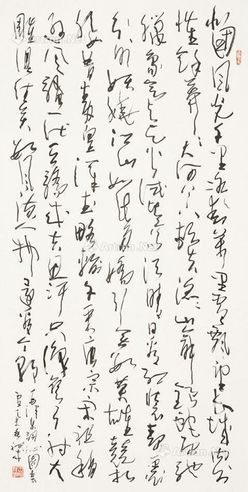 北国风光千里冰封万里雪飘望长城内外
惟余莽莽大河上下顿失滔滔山舞银蛇原驰
蜡象欲与天公试比高须晴日看红装素裹
分外妖娆江山如此多娇引无数英雄竞折
腰惜秦皇汉武略输文采唐宗宋祖稍
逊风骚一代天骄成吉思汗只识弯弓射大
雕俱往矣数风流人物还看今朝